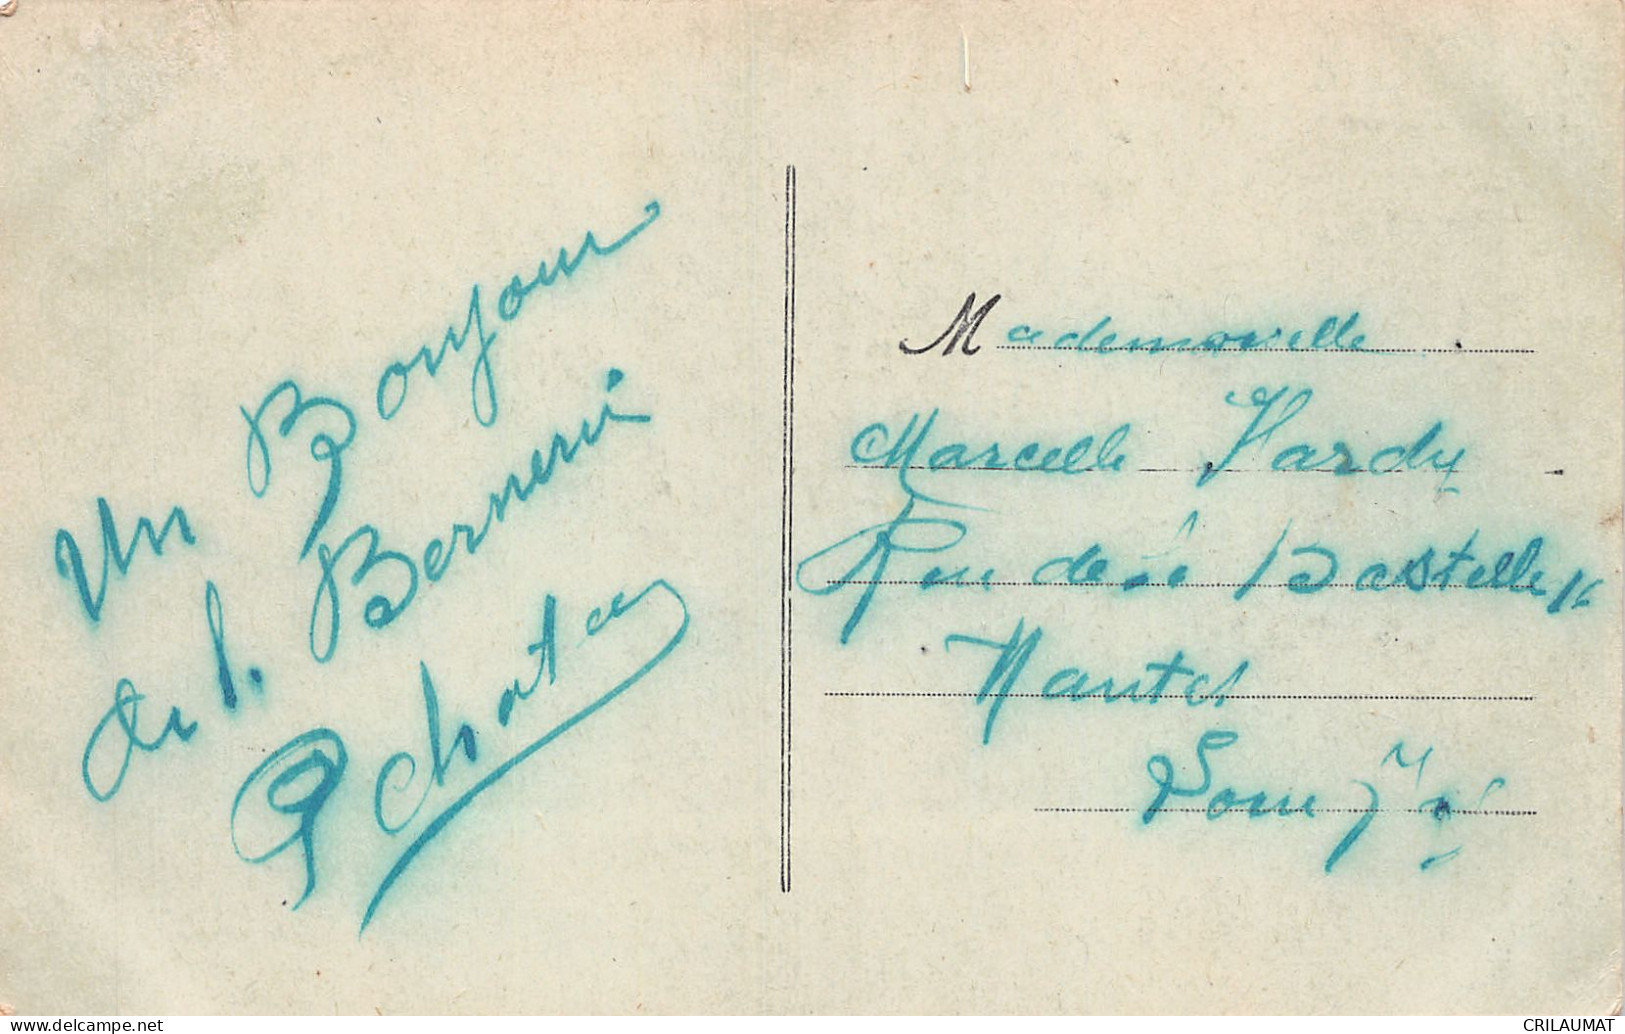 Un Bonjour
de l. Bernerie
P Chata
Mademoiselle
Marcelle Hardy
Rue de la Bastelle
Nantes
Loire Inf
delcampe.net
CRILAUMAT